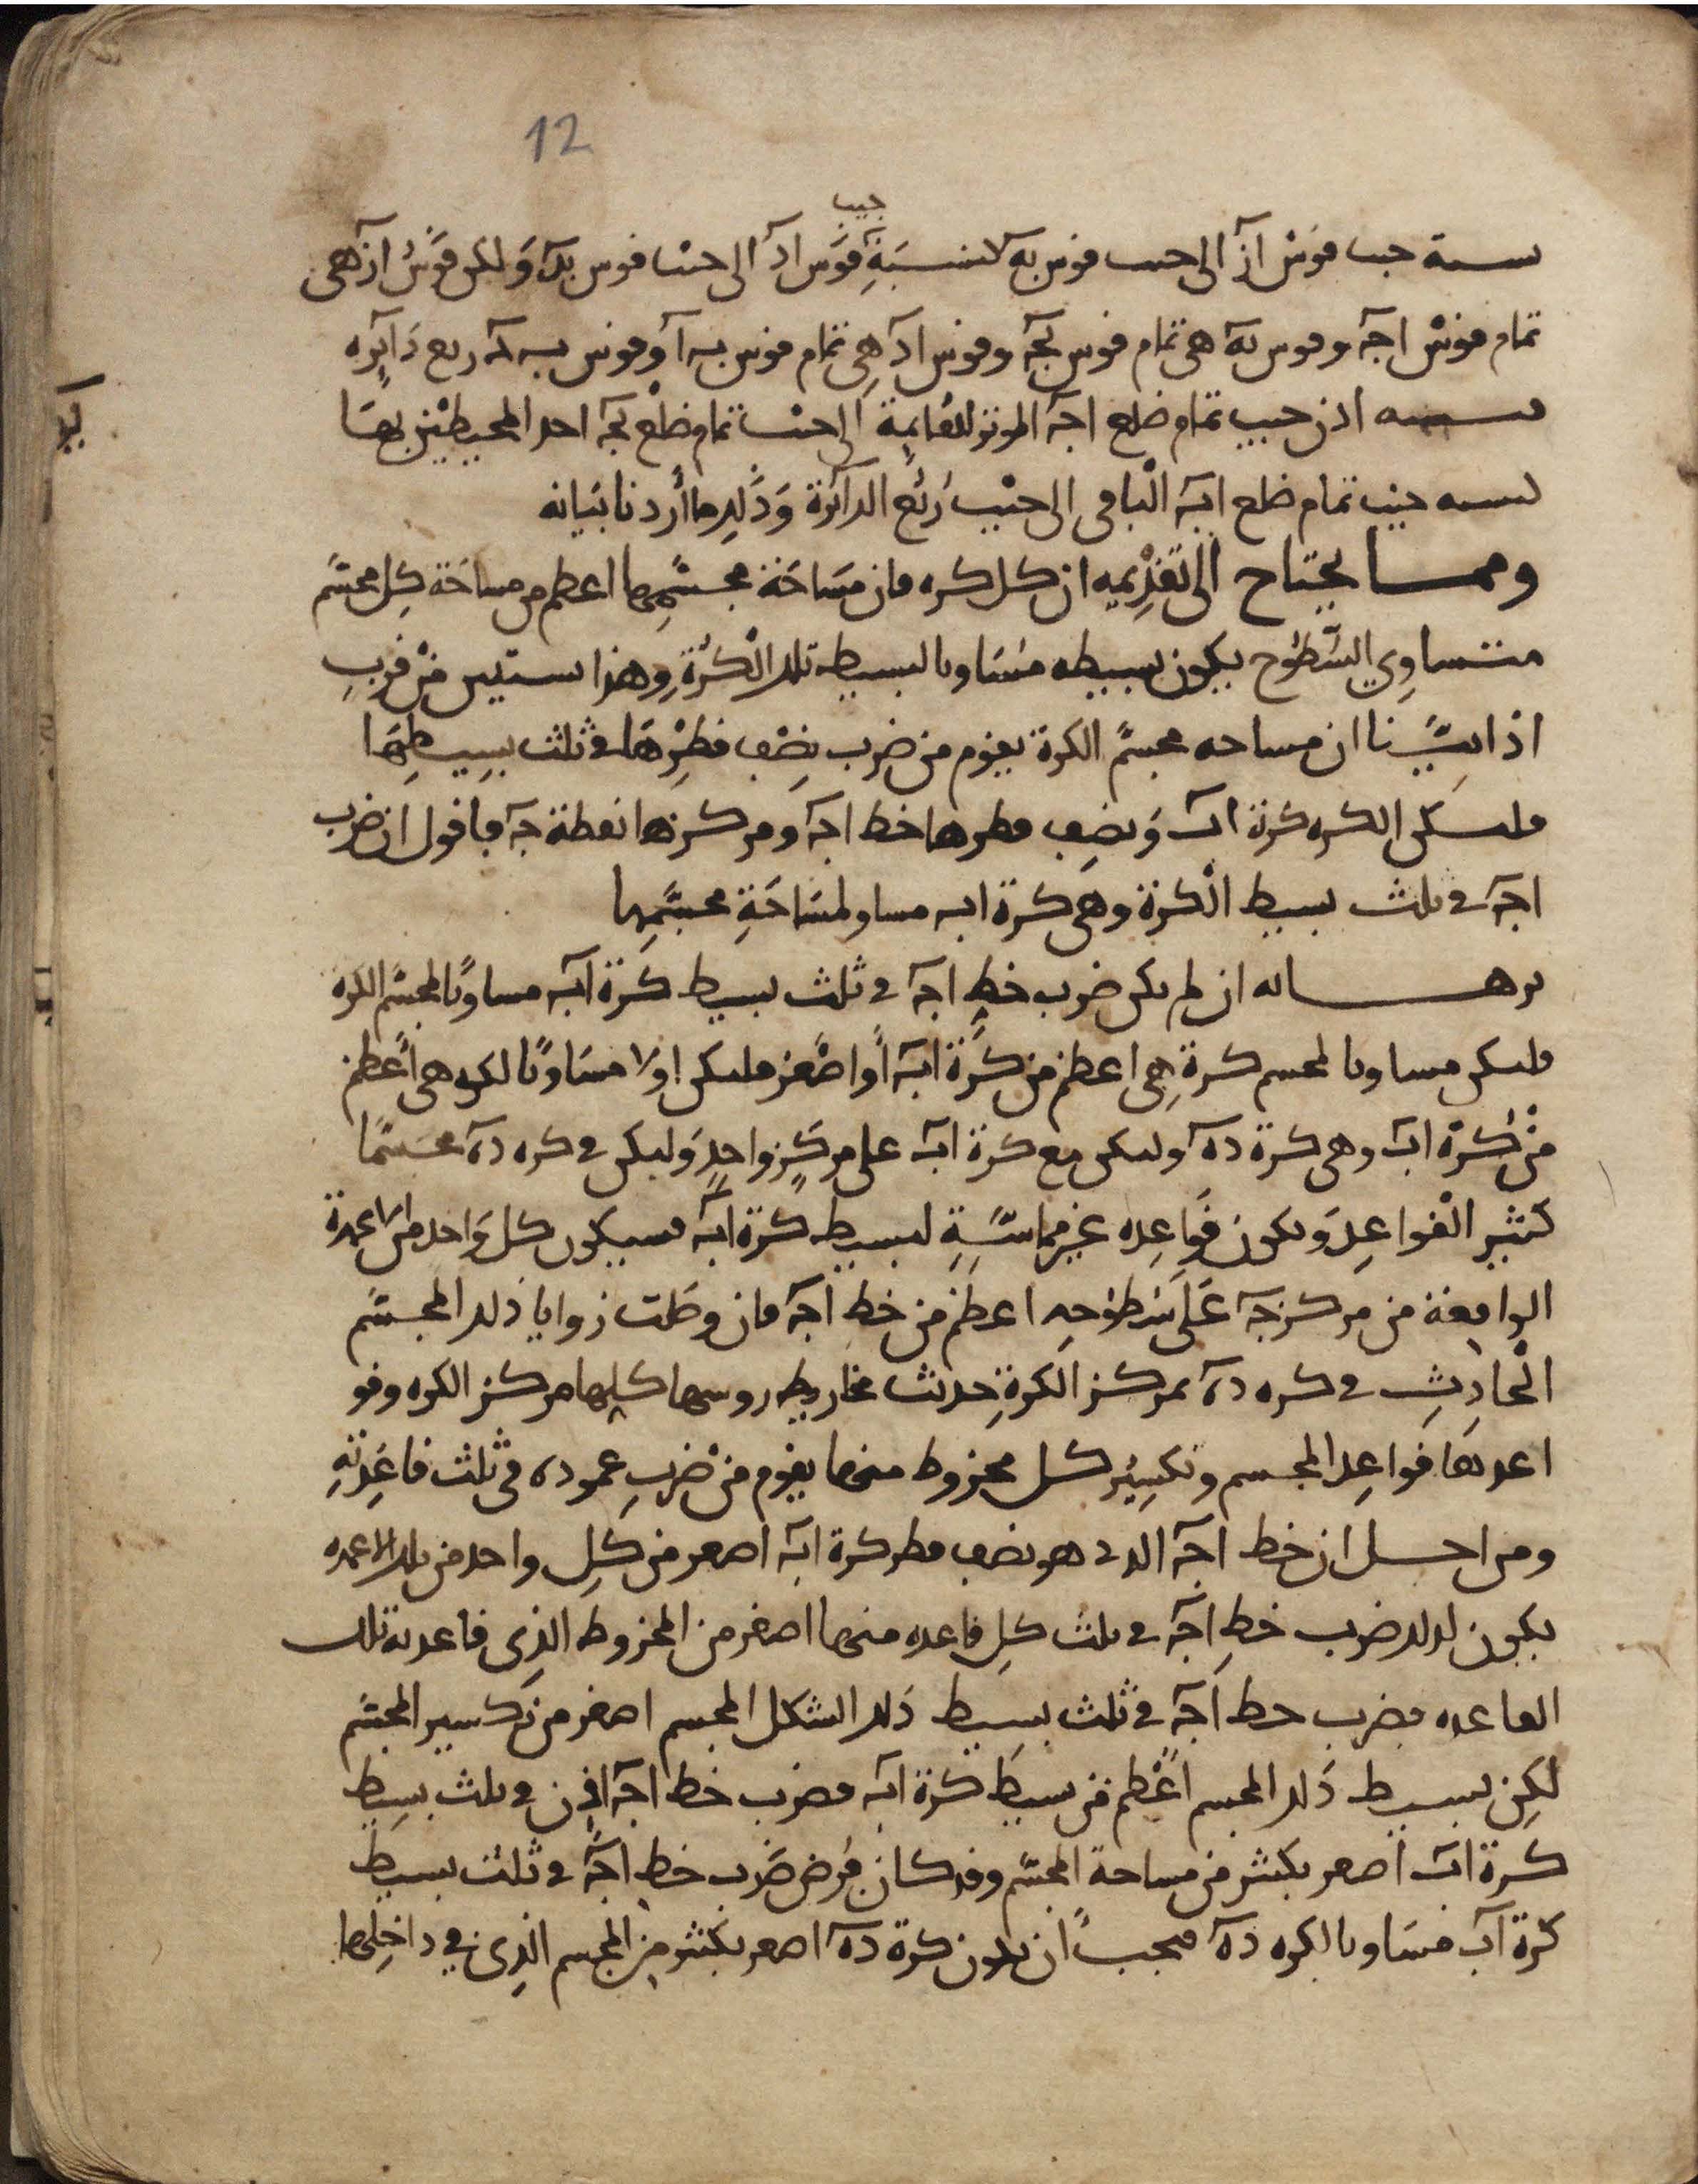 12
جيب
نسبة جيب قوس از الى جيب قوس به كنسبة قوس اد الى جيب قوس بد ولكن قوس از هى
تمام قوس اجـ وقوس به هى تمام قوس بجـ وقوس اد هى تمام قوس ب ا وقوس ب د ربع دايره
نسبه اذن جيب تمام ضلع اجـ الموتر للقايمة الى جيب تمام ضلع بجـ احد المحيطين بها
كنسبه جيب تمام ضلع اب الباقى الى جيب ربع الدائرة وذلك ما أردنا بيانه
ومما يحتاح الى تقديمه ان كل كره فان مساحة مجسمها اعظم من مساحة كل مجسم
متساوي السطوح يكون بسيطه مساويا لبسيط تلك الكرة وهذا يستبين من قرب
اذا بينا ان مساحه مجسم الكرة يقوم من ضرب نصف قطرها فى ثلث بسيطها
فلتكن الكره كرة اب ونصف قطرها خط اجـ ومركزها نقطة جـ فاقول ان ضرب
اجـ فى ثلث بسيط الكرة وهى كرة اب مساو لمساحة مجسمها
برهانه ان لم يكن ضرب خط اجـ فى ثلث بسيط كرة اب مساويا لمجسم الكره
فليكن مساويا لمجسم كرة هى اعظم من كرة اب أو اصغر فليكن اولا مساويا لكره هى أعظم
من كرة اب وهى كرة ده ولتكن مع كرة اب على مركز واحد وليكن فى كره ده مجسما
كثير القواعد وتكون قواعده غير مماسة لبسيط كرة اب فسيكون كل واحد من الاعمدة
الواقعة من مركز جـ على سطوحه اعظم من خط اجـ فان وصلت زوايا ذلك المجسم
الحادث فى كره ده بمركز الكرة حدثت مخاريط روسها كلها مركز الكره وقو
اعدتها قواعد المجسم وتكسير كل مخروط منها يقوم من ضرب عموده فى ثلث قاعدته
ومن اجل ان خط اجـ الذى هو نصف قطر كرة اب اصغر من كل واحد من تلك الاعمده
يكون لذلك ضرب خط اجـ فى ثلث كل قاعده منها اصغر من المخروط الذى قاعدته تلك
القاعده فضرب خط اجـ فى ثلث بسيط ذلك الشكل المجسم اصغر من تكسير المجسم
لكن بسيط ذلك المجسم اعظم من بسيط كرة اب فضرب خط اجـ اذن فى ثلث بسيط
كرة اب اصغر بكثير من مساحة المجسم وقد كان فرض ضرب خط اجـ فى ثلث بسيط
كرة اب مساويا لكره ده فيجب ان تكون كرة ده اصغر بكثير من المجسم الذى في داخلها